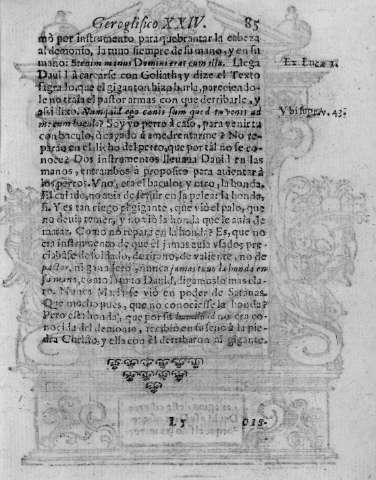 Geroglifico XXIV. 85
mò por instrumento para quebrantar la cabeza
al demonio, la tuuo siempre de su mano, y en su
mano: Etenim manus Domini erat cum illa. Llega
Ex Luca 1.
Dauid à cararse con Goliath; y dize el Texto
sagrado, que el giganton hizo burla, pareciendo-
le no traía el pastor armas con que derribarle, y
assi dixo. Nunquid ego canis sum quod tu venis ad
Vbi supr. v. 43.
me cum baculo? Soy yo perro à caso, para venir tu
con baculo, ò cayado à amedrentarme? No re-
paròn en el dicho del perro, que por tal no se co-
noce: Dos instrumentos lleuaua Dauid en las
manos, entrambos à proposito para auientar à
los perros. Vno, era el baculo; y otro, la honda.
El baculo, no auia de seruir en la pelea; la honda,
si. Y es tan ciego el gigante, que viò el palo, que
no deuia temer, y no viò la honda que le auia de
matar. Como nò repara en la honda? Es, que no
era instrumento de que el jamas auia vsado; pre-
ciabase de soldado, de tirano, de valiente, no de
pastor, ni ganadero, nunca jamas tuuo la honda en
su mano, como
Dauid. Digamoslo mas cla-
ro. Nunca Maria se viò en poder de Satanas.
Que mucho pues, que no conociesse la honda?
Pero esta honda, que por su humildad no era co-
nocida del demonio, recibiò en su seno à la pie-
dra Christo, y ella con èl derribaron al gigante.
L5 OIS-